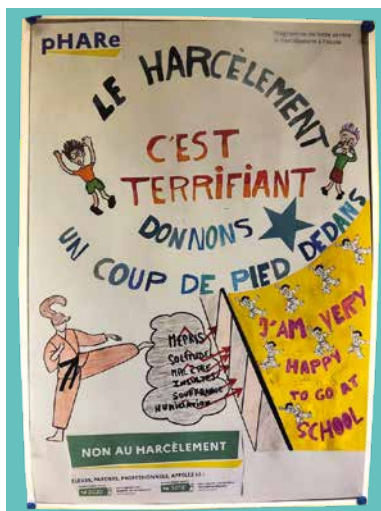 pHARe
Programme de lutte contre
le harcèlement à l'école
LE HARCÈLEMENT
C'EST
TERRIFIANT
DONNONS
UN COUP DE PIED DEDANS
MÉPRIS
SOLITUDE
MAL ÊTRE
INSULTES
SOUFFRANCE
HUMILIATION
I'AM VERY
HAPPY
TO GO AT
SCHOOL
NON AU HARCÈLEMENT
ÉLÈVES, PARENTS, PROFESSIONNELS, APPELEZ LE :